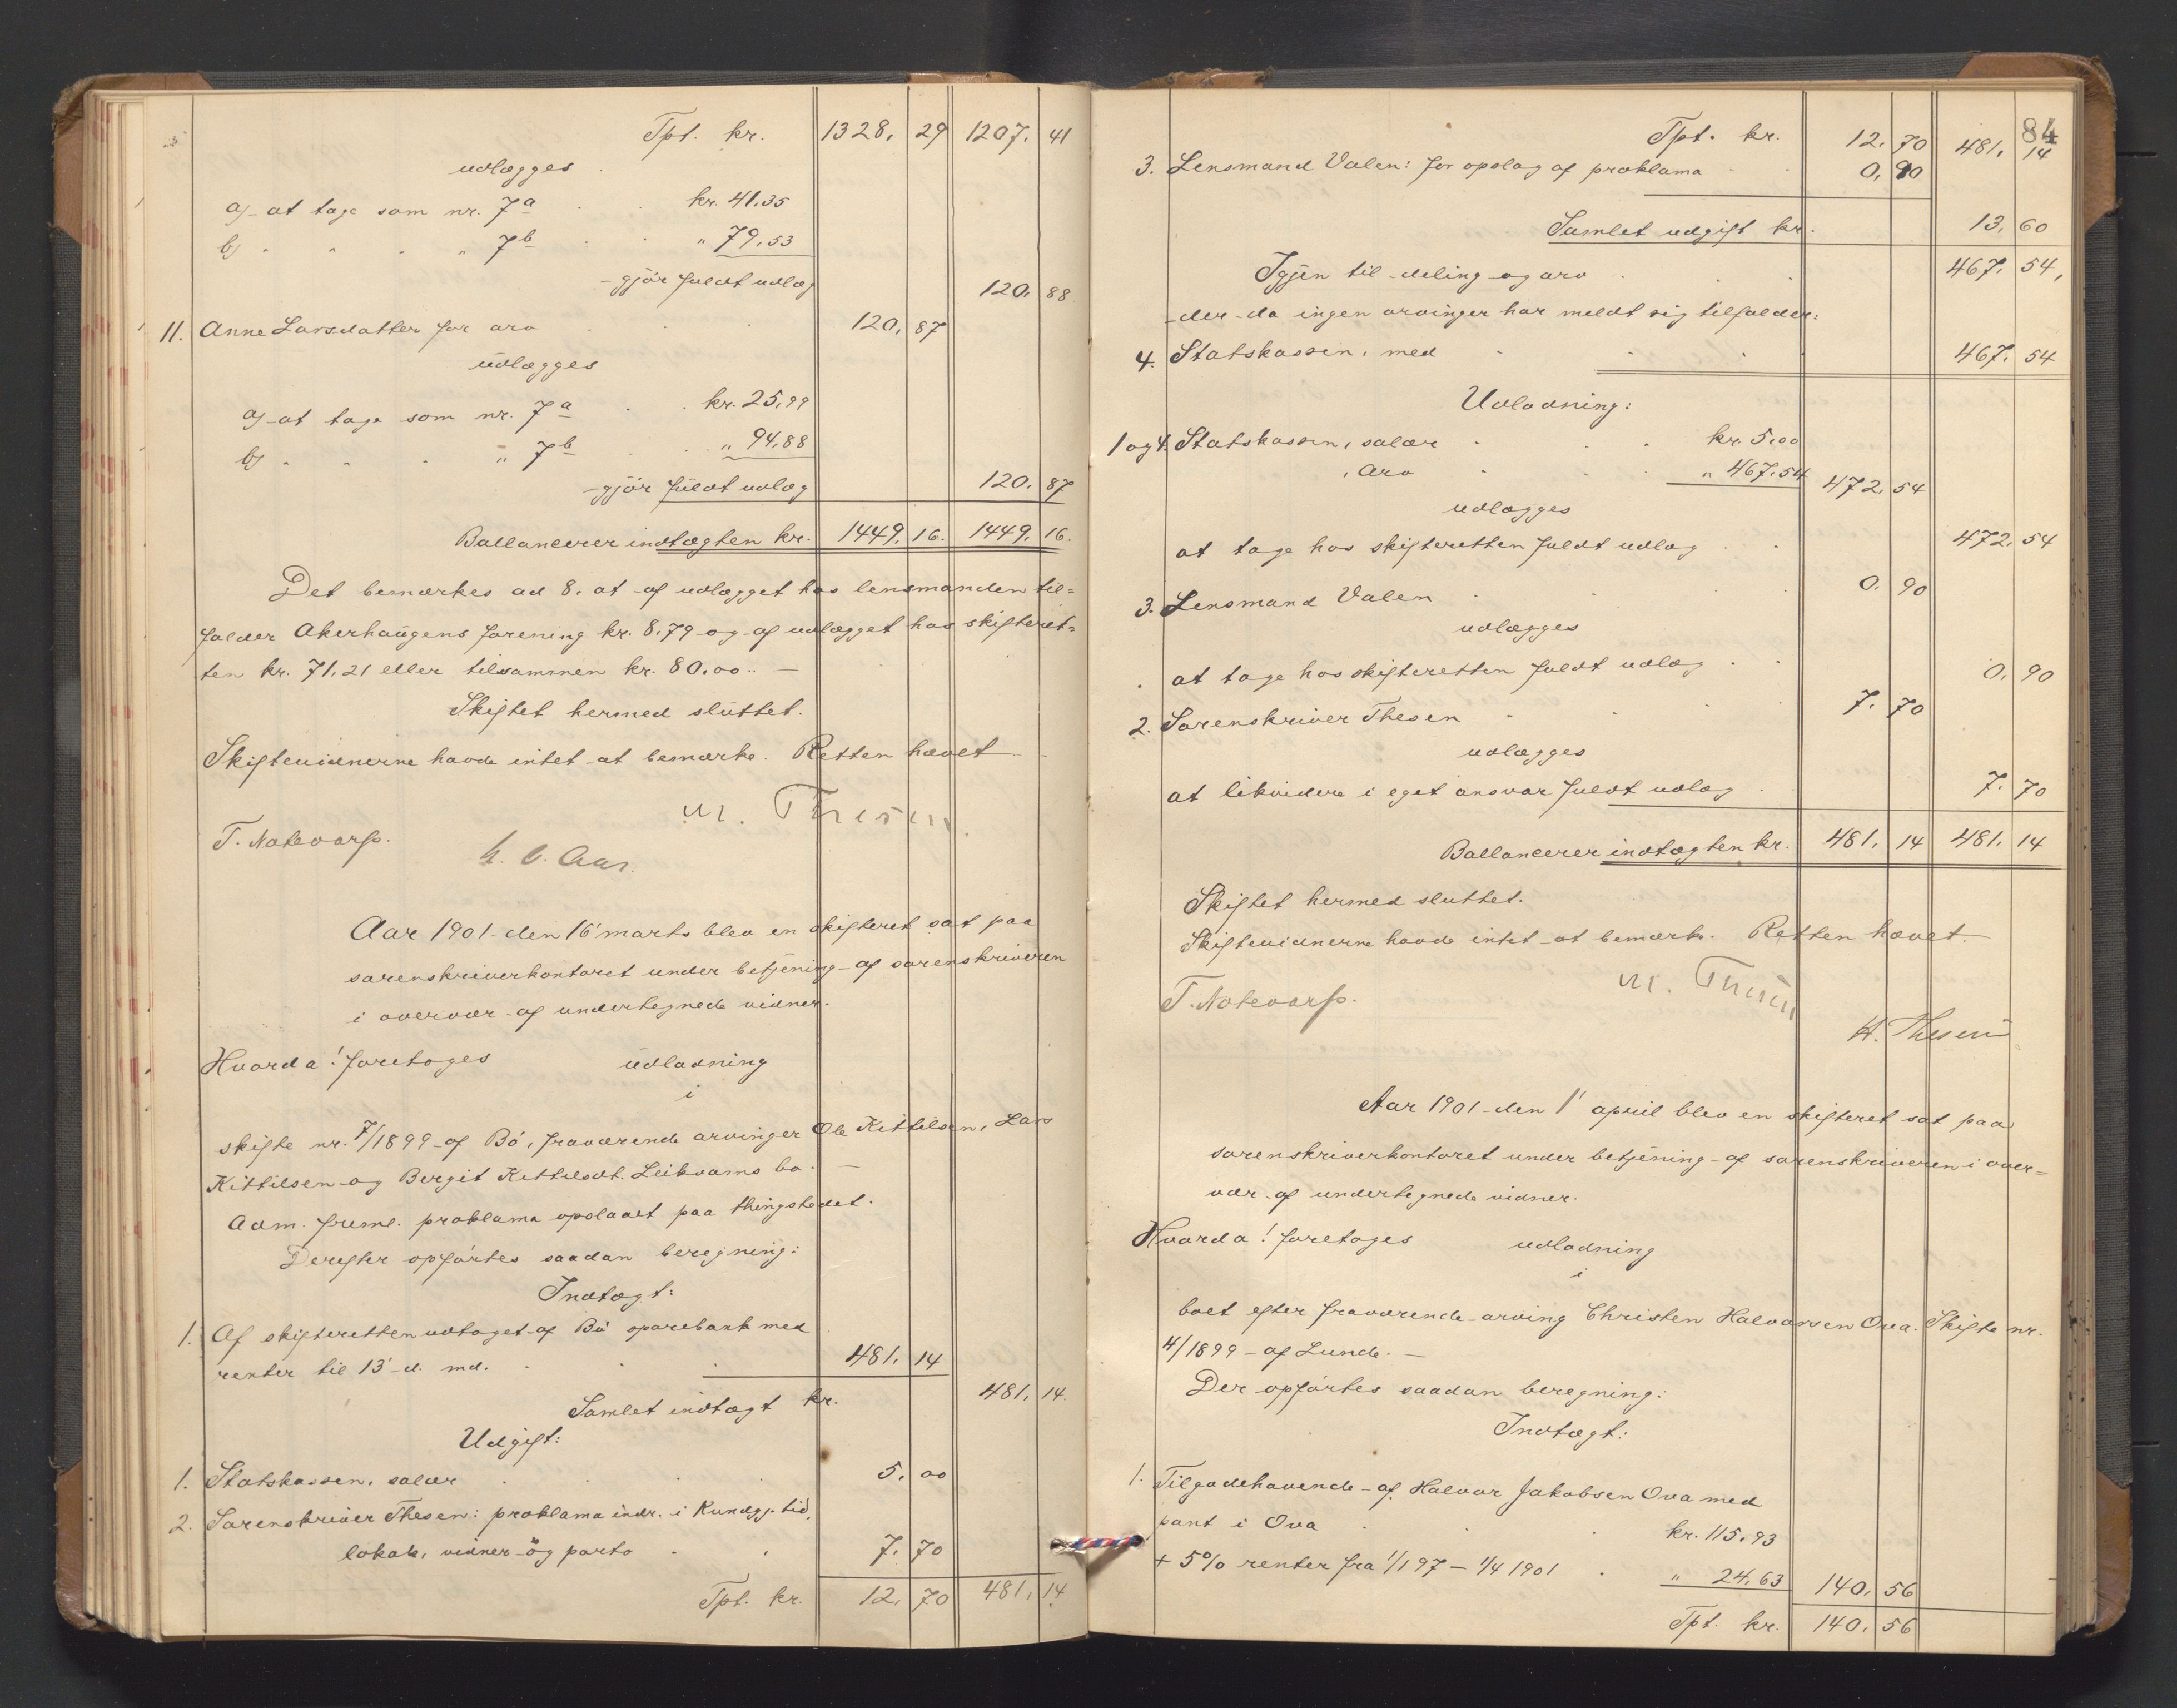 Tpt. kr. 1328, 29 1207, 41
udlægges
a) at tage som nr. 7a kr. 41,35
b) " " " " 7b " 79,53
gjør fuldt udlæg 120, 88
11. Anne Larsdatter for arv 120, 87
udlægges
a) at tage som nr. 7a kr. 25,99
b) " " " " 7b " 94,88
gjør fuldt udlæg 120, 87
Ballancerer indtægten kr. 1449, 16. 1449, 16.
Det bemærkes ad 8, at af udlægget hos lensmanden til=
falder Akerhaugens forening kr. 8,79 og af udlægget hos skifteret=
ten kr. 71,21 eller tilsammen kr. 80,00.. —
Skiftet hermed sluttet.
Skiftevidnerne havde intet at bemærke. Retten hævet
M. Thesen.
T. Notevarp.
Aar 1901 den 16' marts blev en skifteret sat paa
sorenskriverkontoret under betjening af sorenskriveren
i overvær af undertegnede vidner.
Hvorda! foretoges udlodning
i
skifte nr. 7/1899 af Bø, fraværende arvinger Ole Kittilsen, Lars
Kittilsen og Bergit Kittilsdt. Leikvams bo. —
Adm. freml. proklama opslaaet paa thingstedet.
Derefter opførtes saadan beregning:
Indtægt:
1. Af skifteretten udtaget af Bø sparebank med
renter til 13' d. md. 481, 14
Samlet indtægt kr. 481, 14.
Udgift:
1. Statskassen, salær 5, 00
2. Sorenskriver Thesen: proklama indr. i Kundgj. tid.
lokale, vidner og porto 7, 70
Tpt. kr. 12, 70 481, 14
84
Tpt. kr. 12, 70 481, 14
3. Lensmand Valen: for opslag af proklama 0, 90
Samlet udgift kr. 13, 60
Igjen til deling og arv 467, 54,
der da ingen arvinger har meldt sig tilfalder:
4. Statskassen, med 467, 54
Udlodning:
1 og 4. Statskassen, salær kr. 5,00
, arv " 467,54 472, 54
udlægges
at tage hos skifteretten fuldt udlæg 472, 54
3. Lensmand Valen 0, 90
udlægges
at tage hos skifteretten fuldt udlæg 0, 90
2. Sorenskriver Thesen 7, 70
udlægges
at likvidere i eget ansvar fuldt udlæg 7, 70
Ballancerer indtægten kr. 481, 14 481, 14
Skiftet hermed sluttet.
Skiftevidnerne havde intet at bemærke. Retten hævet.
M. Thesen
T. Notevarp.
H. Thesen
Aar 1901 den 1' april blev en skifteret sat paa
sorenskriverkontoret under betjening af sorenskriveren i over=
vær af undertegnede vidner.
Hvorda! foretoges udlodning
i
boet efter fraværende arving Christen Halvorsen Ova. Skifte nr.
4/1899 af Lunde. —
Der opførtes saadan beregning:
Indtægt:
1. Tilgodehavende af Halvor Jakobsen Ova med
pant i Ova kr. 115,93
+ 5% renter fra 1/1 97 – 1/4 1901 " 24,63 140, 56
Tpt. kr. 140, 56